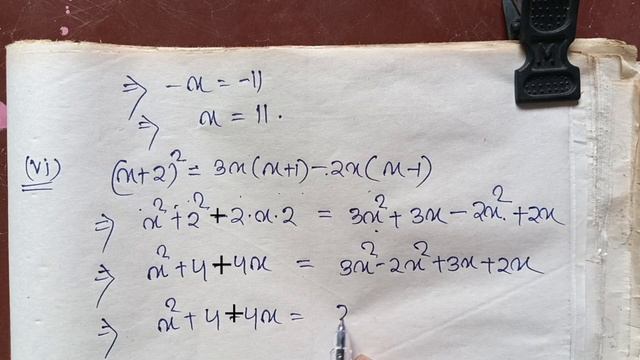 ⇒ -x = -11
⇒ x = 11.
(vi) (x+2)² = 3x(x+1) - 2x(x-1)
⇒ x² + 2² + 2·x·2 = 3x² + 3x - 2x² + 2x
⇒ x² + 4 + 4x = 3x² - 2x² + 3x + 2x
⇒ x² + 4 + 4x =